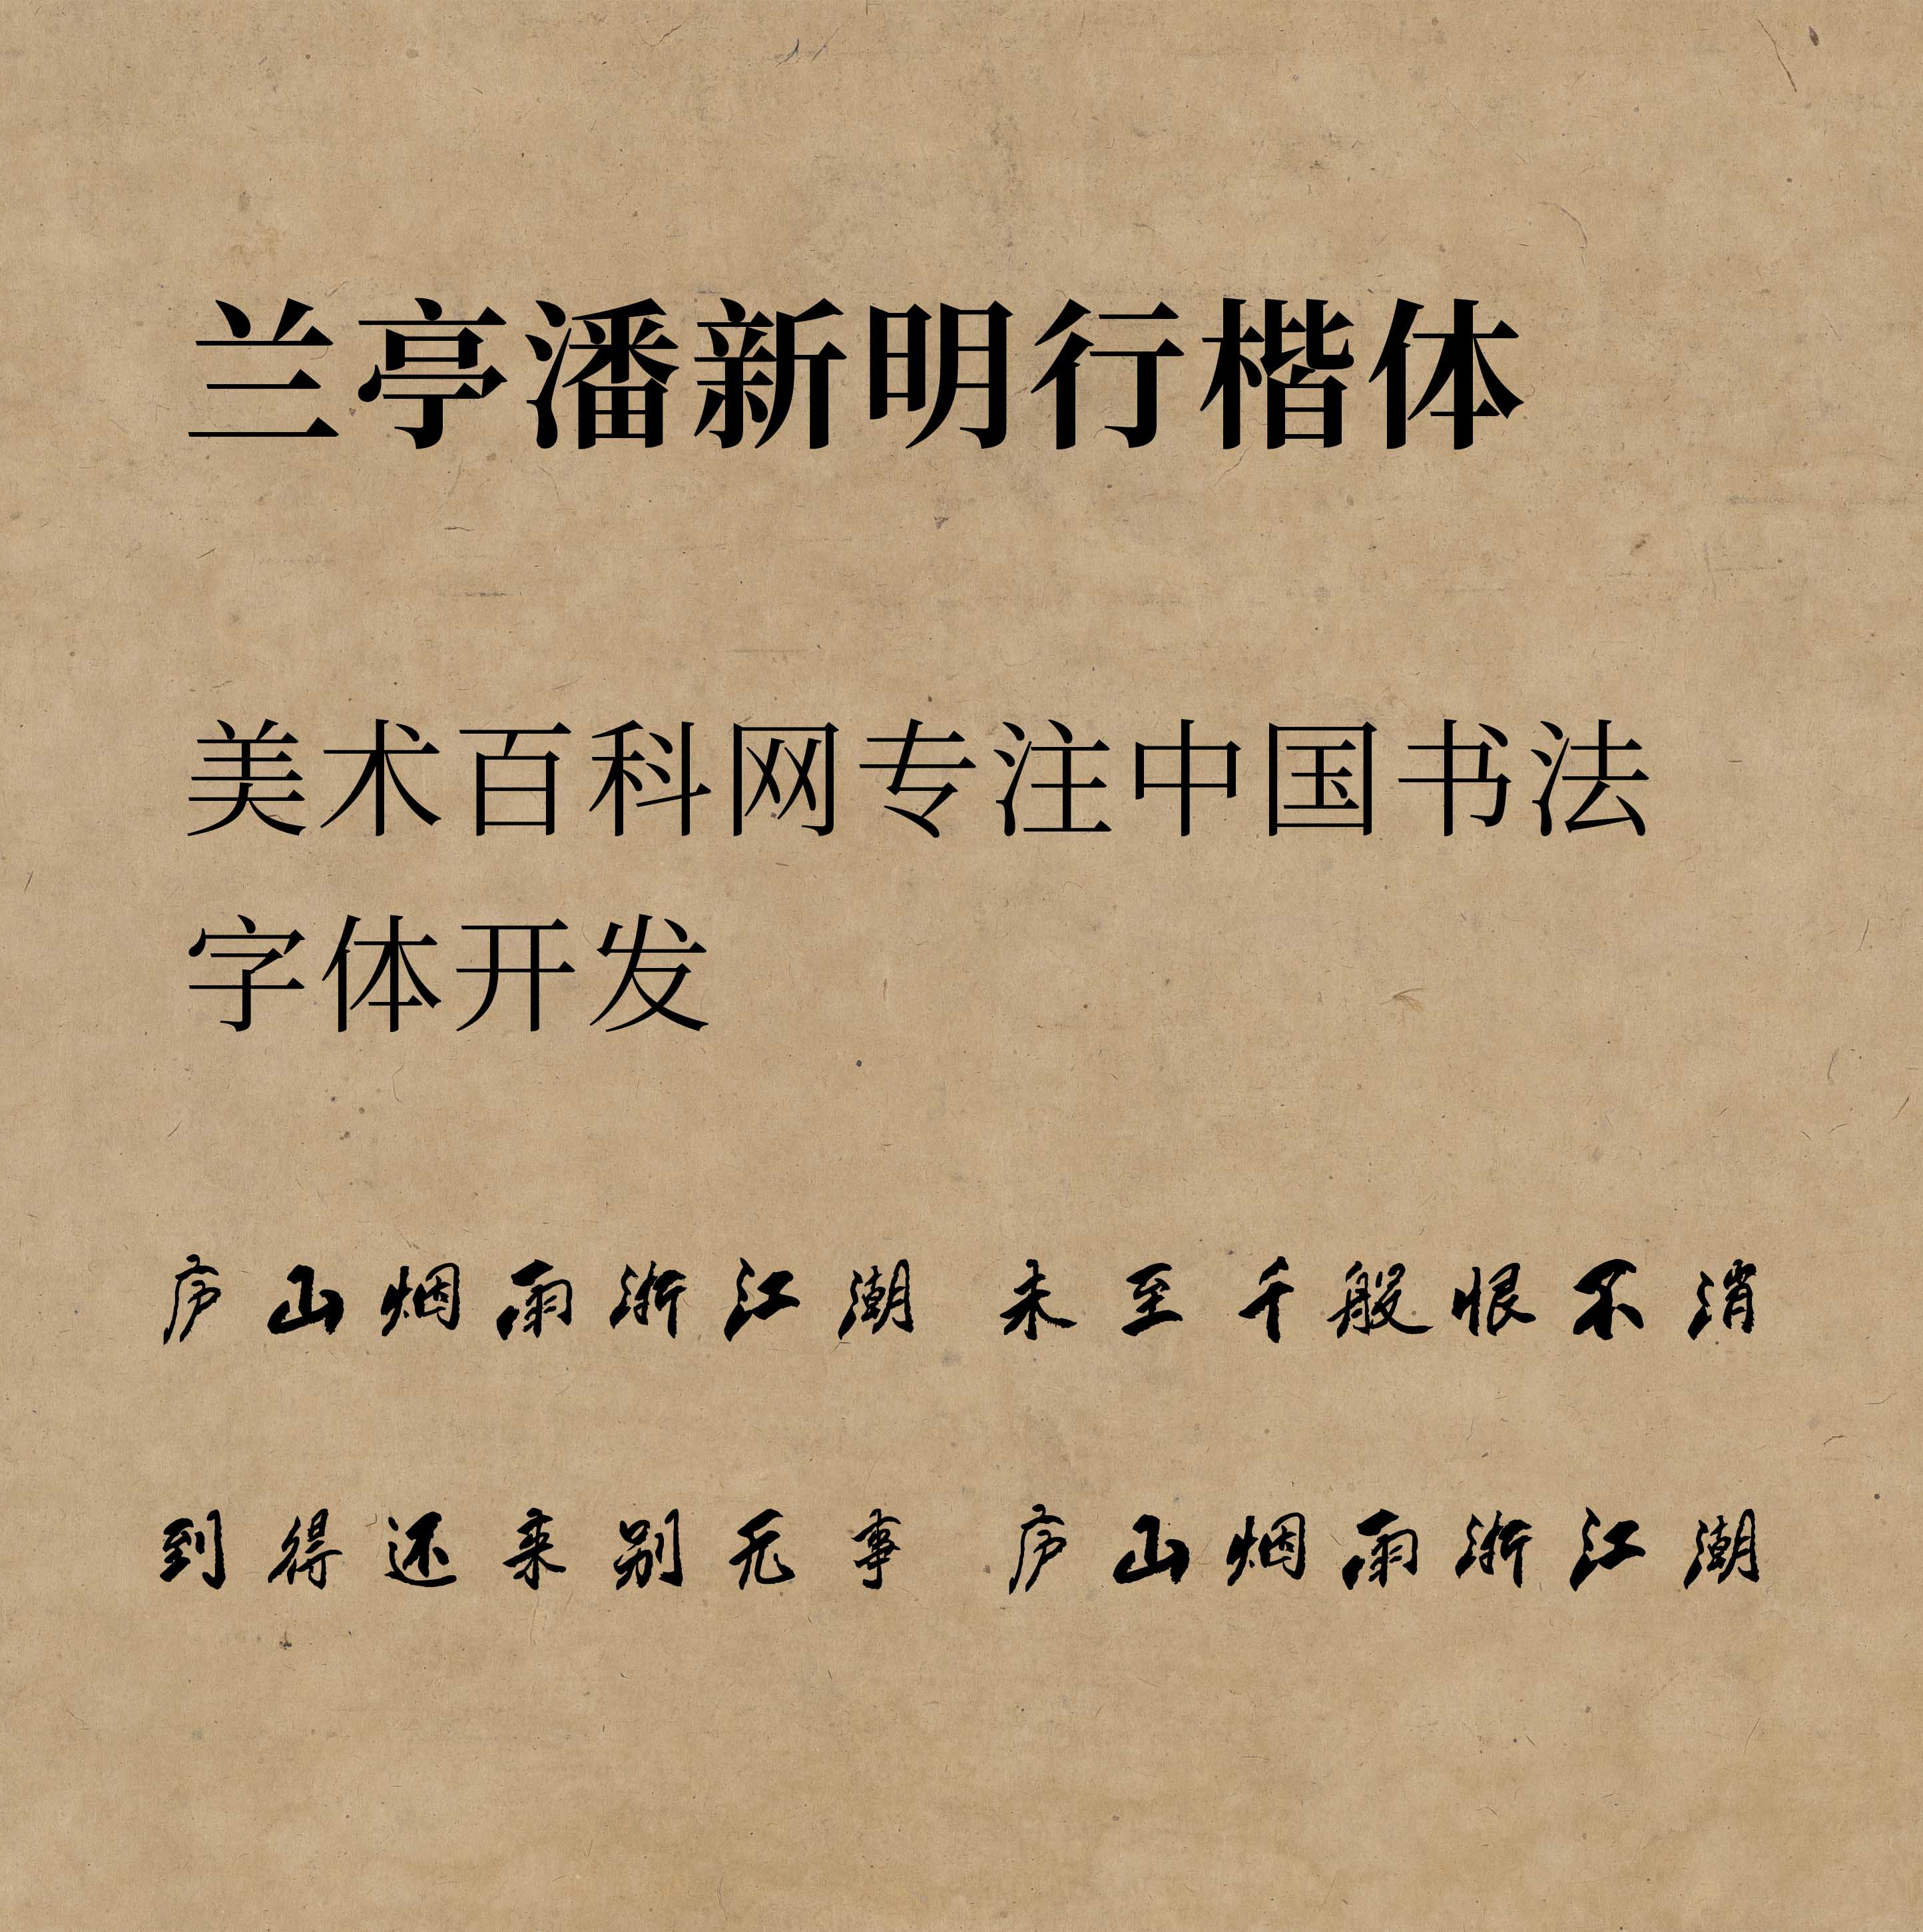 兰亭潘新明行楷体
美术百科网专注中国书法
字体开发
庐山烟雨浙江潮 未至千般恨不消
到得还来别无事 庐山烟雨浙江潮